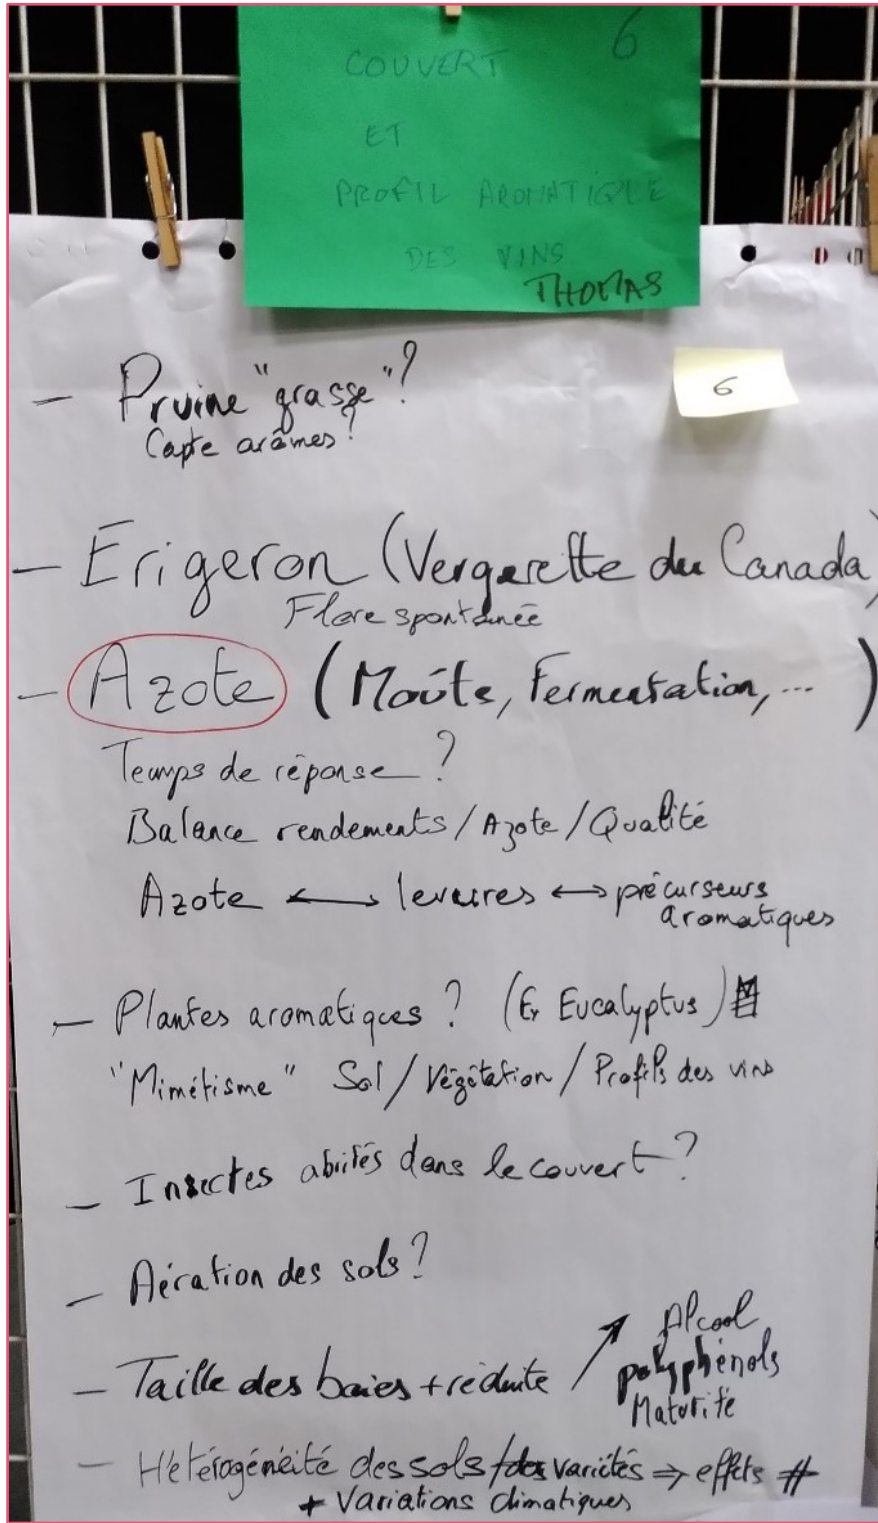 6
COUVERT
ET
PROFIL AROMATIQUE
DES VINS
THOMAS
6
- Pruine "grasse"?
Capte arômes?
- Erigeron (Vergerette du Canada)
Flore spontanée
- Azote (Moûts, Fermentation, ... )
Temps de réponse ?
Balance rendements / Azote / Qualité
Azote ↔ levures ↔ précurseurs
aromatiques
- Plantes aromatiques ? (Ex Eucalyptus)
"Mimétisme" Sol / Végétation / Profils des vins
- Insectes abrités dans le couvert ?
- Aération des sols ?
- Taille des baies + réduite ↗ Alcool
polyphénols
Maturité
- Hétérogénéité des sols / variétés ⇒ effets #
+ Variations climatiques